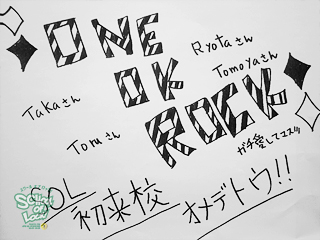 ONE
OK
ROCK
Takaさん
Toruさん
Ryotaさん
Tomoyaさん
ガチ愛してマスッ
SOL
初来校
オメデトウ!!
School
of
Lock!